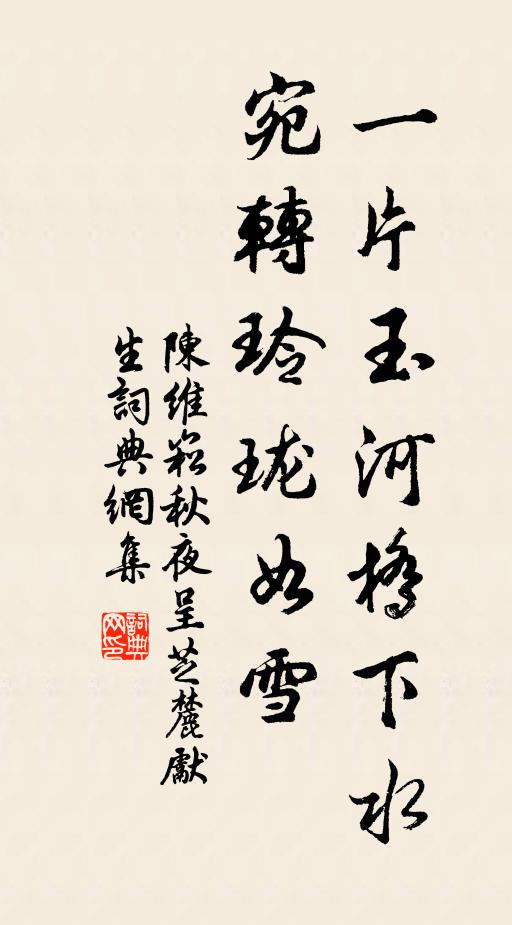 一片玉河橋下水
宛轉玲瓏如雪
陳維崧秋夜呈芝麓獻
生詞典網集
詞典网印